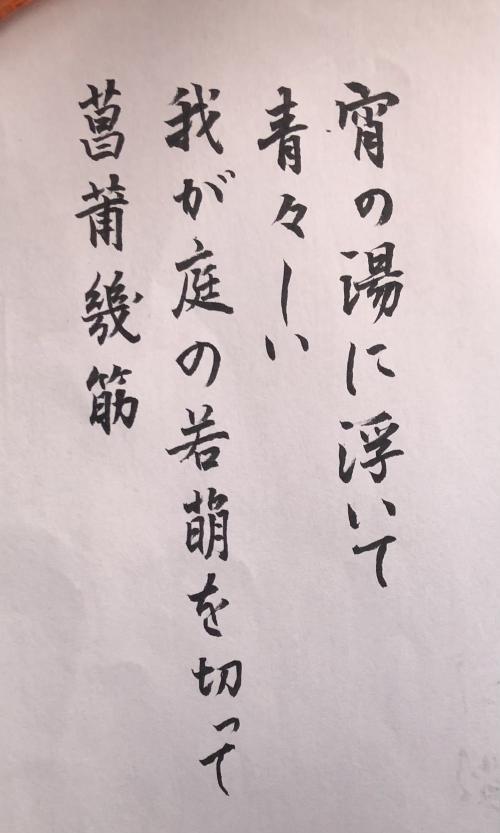 宵の湯に浮いて
青々しい
我が庭の若萌を切って
菖莆幾筋